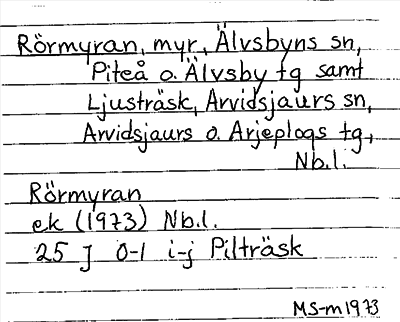 Rörmyran, myr, Älvsbyns sn,
Piteå o. Älvsby tg samt
Ljusträsk, Arvidsjaurs sn,
Arvidsjaurs o. Arjeplogs tg,
Nb.l.
Rörmyran
ek (1973) Nb.l.
25 J 0-1 i-j Pilträsk
MS-m1973